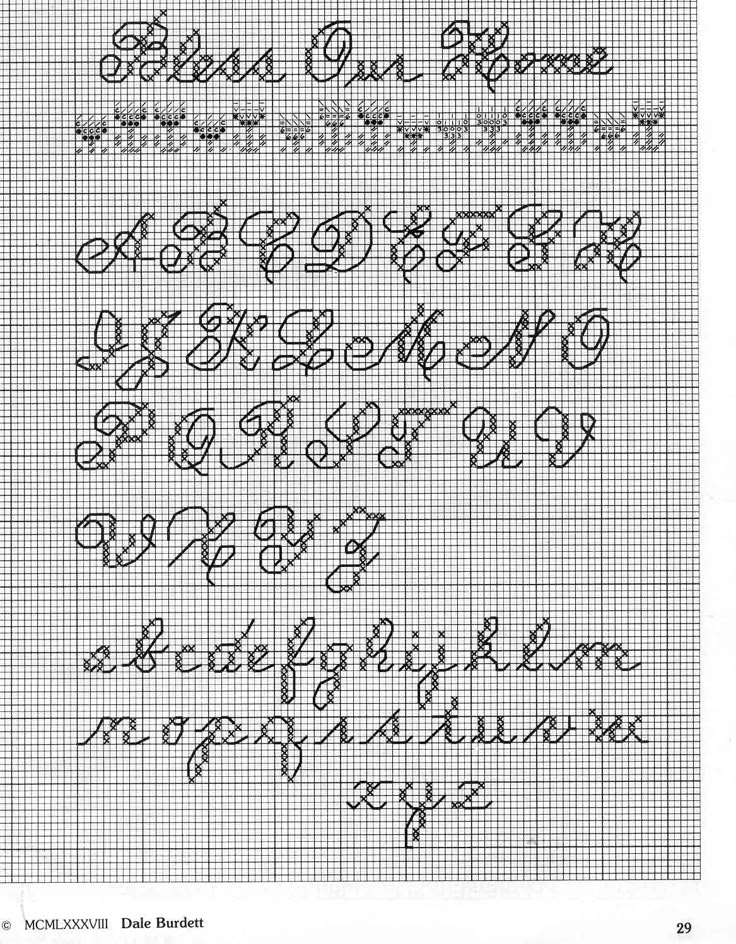 Bless Our Home
A B C D E F G H
I J K L M N O
P Q R S T U V
W X Y Z
a b c d e f g h i j k l m
n o p q r s t u v w
x y z
© MCMLXXXVIII Dale Burdett
29